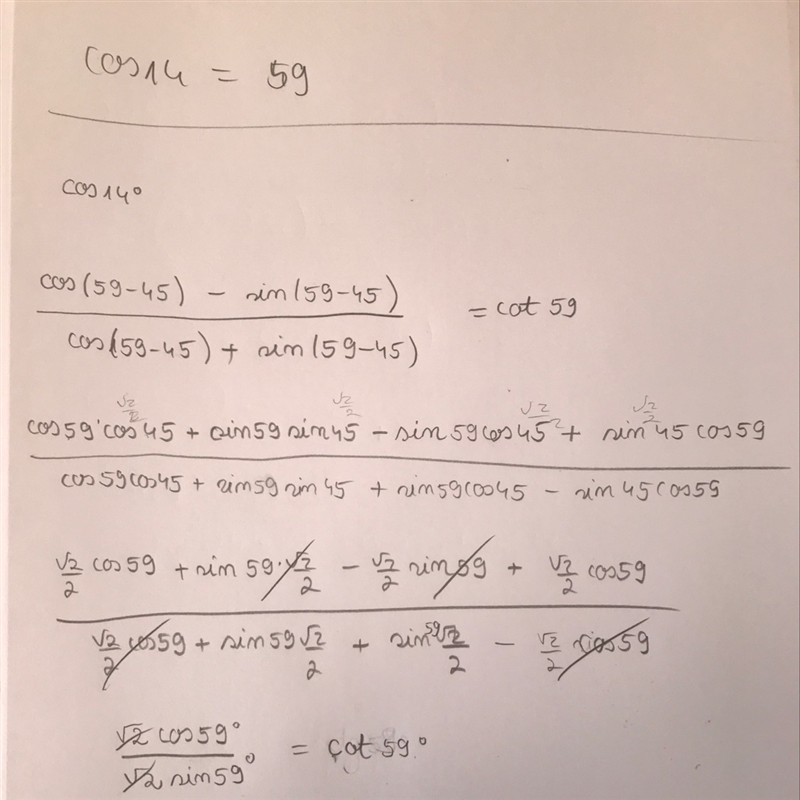 cos14 = 59
cos14°
cos(59-45) - sin(59-45)
= cot 59
cos(59-45) + sin(59-45)
√2/2 √2/2 √2/2 √2/2
cos59·cos45 + sin59 sin45 - sin59cos45 + sin45 cos59
cos59cos45 + sin59 sin45 + sin59cos45 - sin45cos59
√2/2 cos59 + sin59·√2/2 - √2/2 sin59 + √2/2 cos59
√2/2 cos59 + sin59 √2/2 + sin59 √2/2 - √2/2 cos59
√2 cos59°
= cot 59°
√2 sin59°